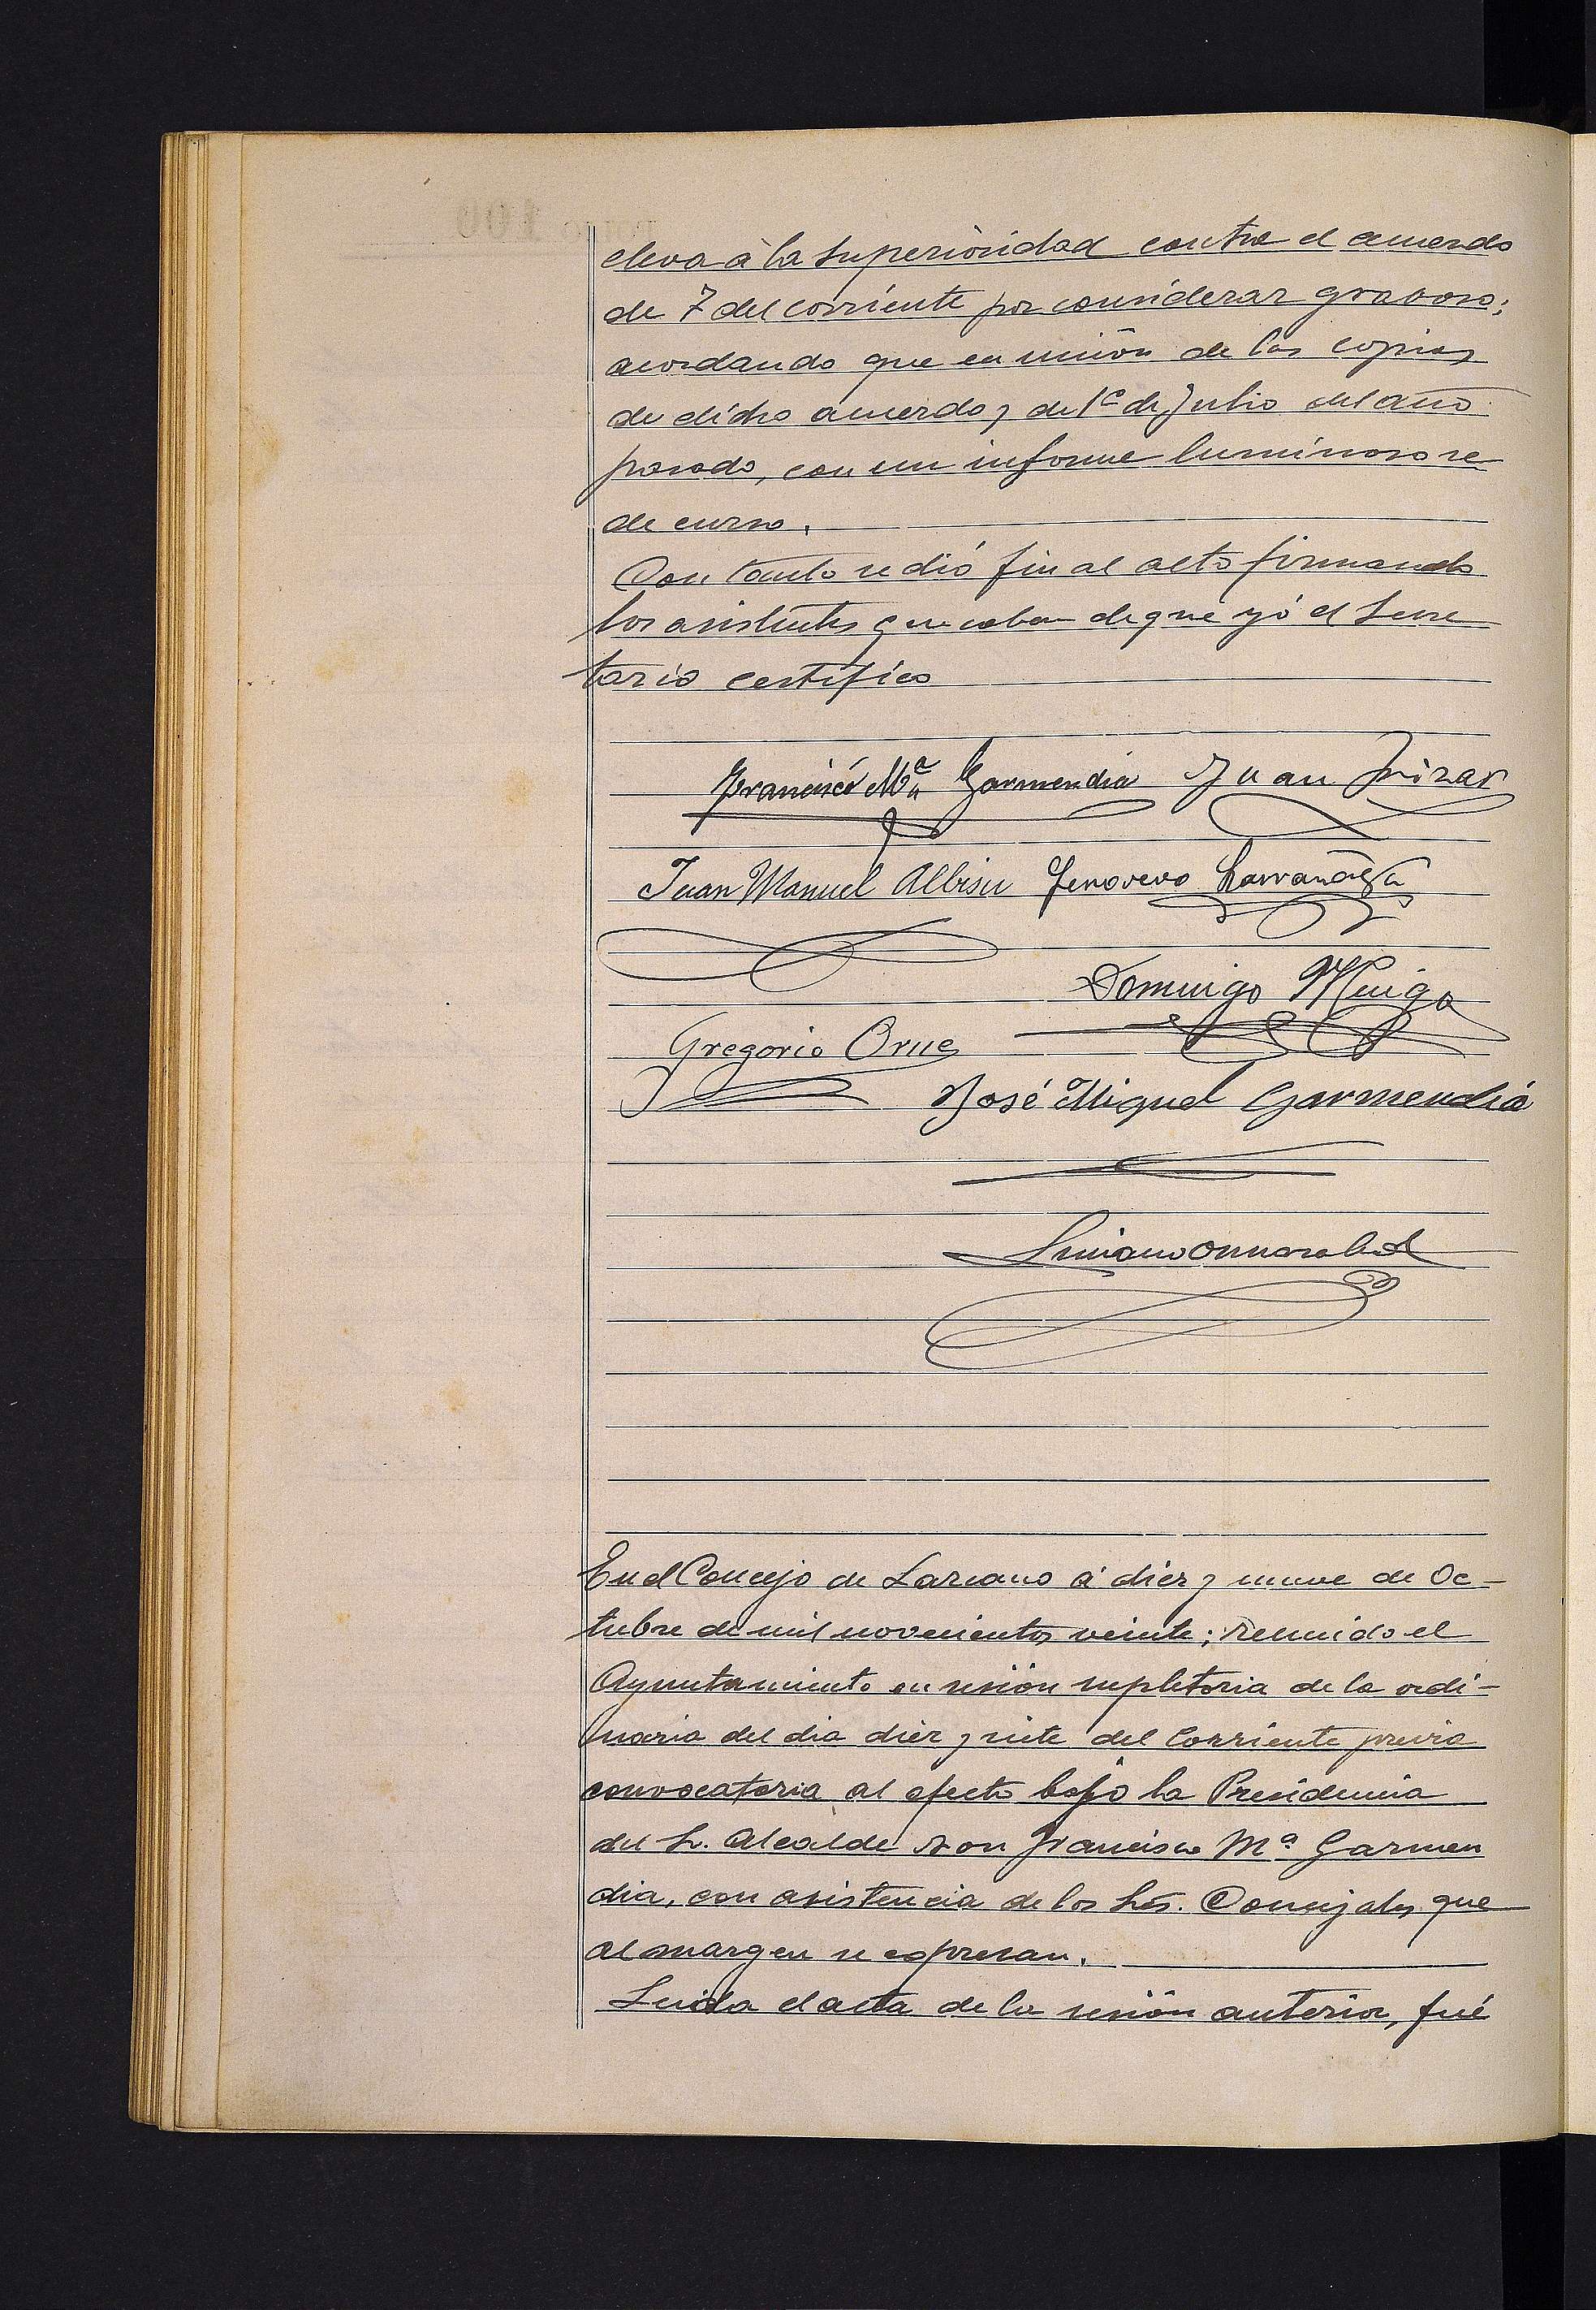 eleva á la Superioridad contra el acuerdo
de 7 del corriente por considerar gravoso;
acordando que en unión de las copias
de dicho acuerdo y de 1º de Julio del año
pasado, con un informe luminoso se
de curso.
Con tanto se dió fin al acto firmando
los asistentes que saben de que yó el Secre
tario certifico
Francisco Mª Garmendia Juan
Juan Manuel Albisu Jenovevo Larrañaga
Domingo Muiga
Gregorio Orue
José Miguel Garmendia
Luciano
En el Concejo de Lazcano á diez y nueve de Oc-
tubre de mil novecientos veinte; reunido el
Ayuntamiento en sesión supletoria de la ordi-
naria del dia diez y siete del Corriente previa
convocatoria al efecto bajo la Presidencia
del Sr. Alcalde Don Francisco Mª Garmen
dia, con asistencia de los Srs. Concejales que
al margen se expresan.
Leida el acta de la sesión anterior, fué